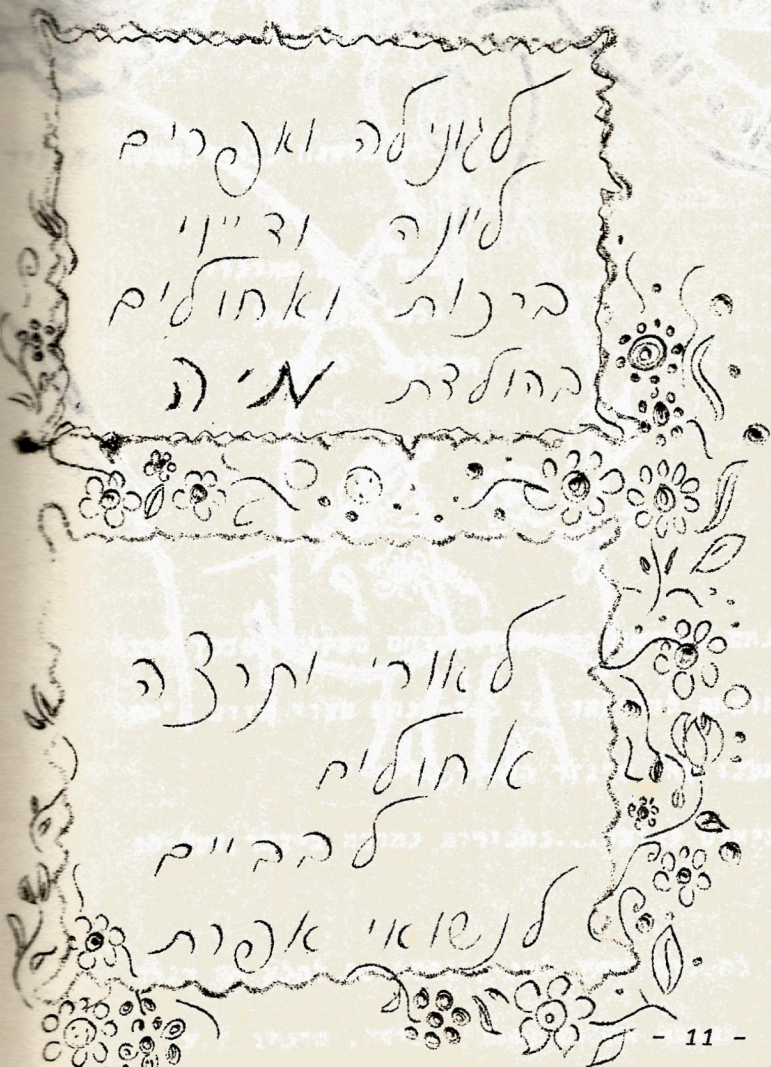 לגונילה ואפרים
ליונה ודייני
ברכות ואחולים
בהולדת מיה
לאורי ותרצה
אחולים
לבביים
לנשואי אפרת
- 11 -